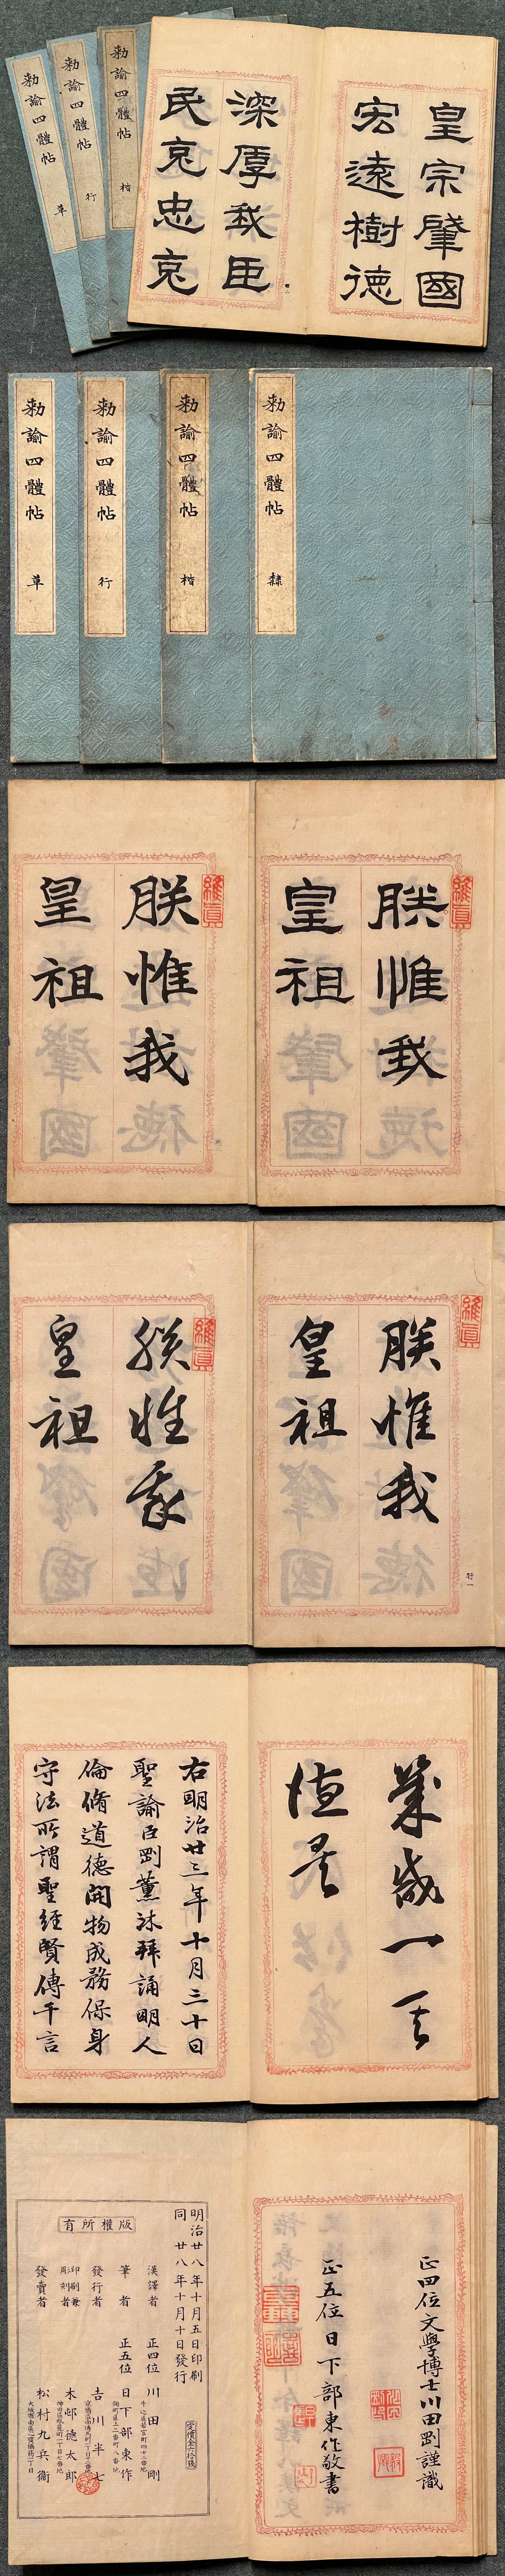 勅諭四體帖 草
勅諭四體帖 行
勅諭四體帖 楷
皇宗肇國
宏遠樹德
深厚我臣
民克忠克
勅諭四體帖 草
勅諭四體帖 行
勅諭四體帖 楷
勅諭四體帖 隸
維真
朕惟我
皇祖
維真
朕惟我
皇祖
維真
朕惟我
皇祖
行一
維真
朕惟我
皇祖
咸一其
德是
右明治廿三年十月三十日
聖諭臣剛薰沐拜誦明人
倫脩道德開物成務保身
守法所謂聖經賢傳千言
正四位文學博士川田剛謹識
正五位日下部東作敬書
明治廿八年十月五日印刷
同 廿八年十月十日發行
漢譯者 正四位 川田剛
筆者 正五位 日下部東作
發行者 吉川半七
印刷兼彫刻者 木邨德太郎
發賣者 松村九兵衞
版權所有